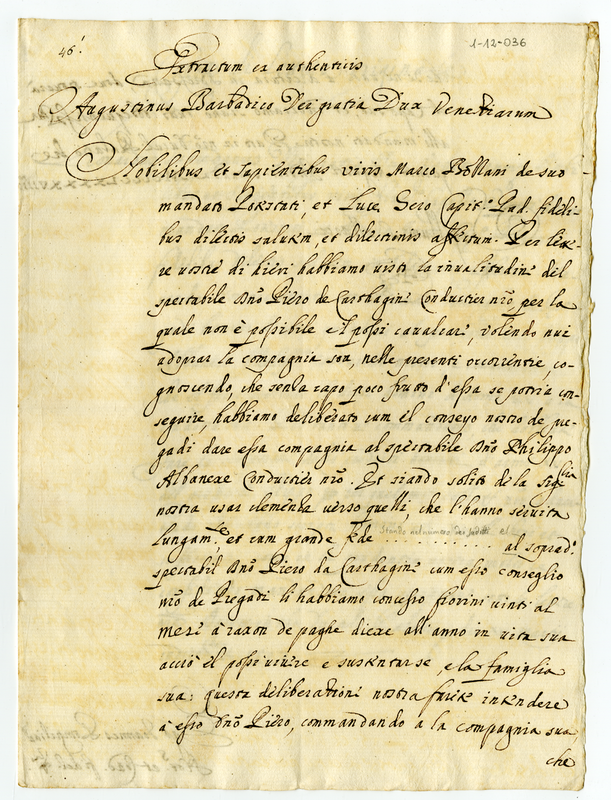 46.
1-12-036
Extractum ex authenticis
Augustinus Barbadico Dei gratia Dux Venetiarum
Nobilibus et sapientibus viris Marco Bollani de suo
mandato Potestati, et Luce Zeno Capit.º Pad. fideli-
bus dilectis salutem, et dilectionis affectum. Per lette-
re vostre di hieri habbiamo visto la invalitudine del
spectabile Dno Piero de Carthagine Conductier nro per la
quale non è possibile el possi cavalcare, volendo nui
adoprar la compagnia soa, nelle presenti occorrentie, co-
gnoscendo, che senza capo poco frutto d'essa se potria con-
seguire, habbiamo deliberato cum el conseyo nostro de pre-
gadi dare essa compagnia al spectabile Dno Philippo
Albanexe Conductier nro. Et siando solito de la Sigria
nostra usar clementia verso quelli, che l'hanno servita
lungam.te, et cum grande fede .......... al soprad.º
stando nel numero dei fedeli el
spectabil Dno Piero da Carthagine cum esso conseglio
nro de Pregadi li habbiamo concesso fiorini vinti al
mese à raxon de paghe diexe all'anno in vita sua
acciò el possi vivere e sustentarse, e la famiglia
sua: questa deliberatione nostra farete intendere
à esso Dno Piero, commandando à la compagnia sua,
che